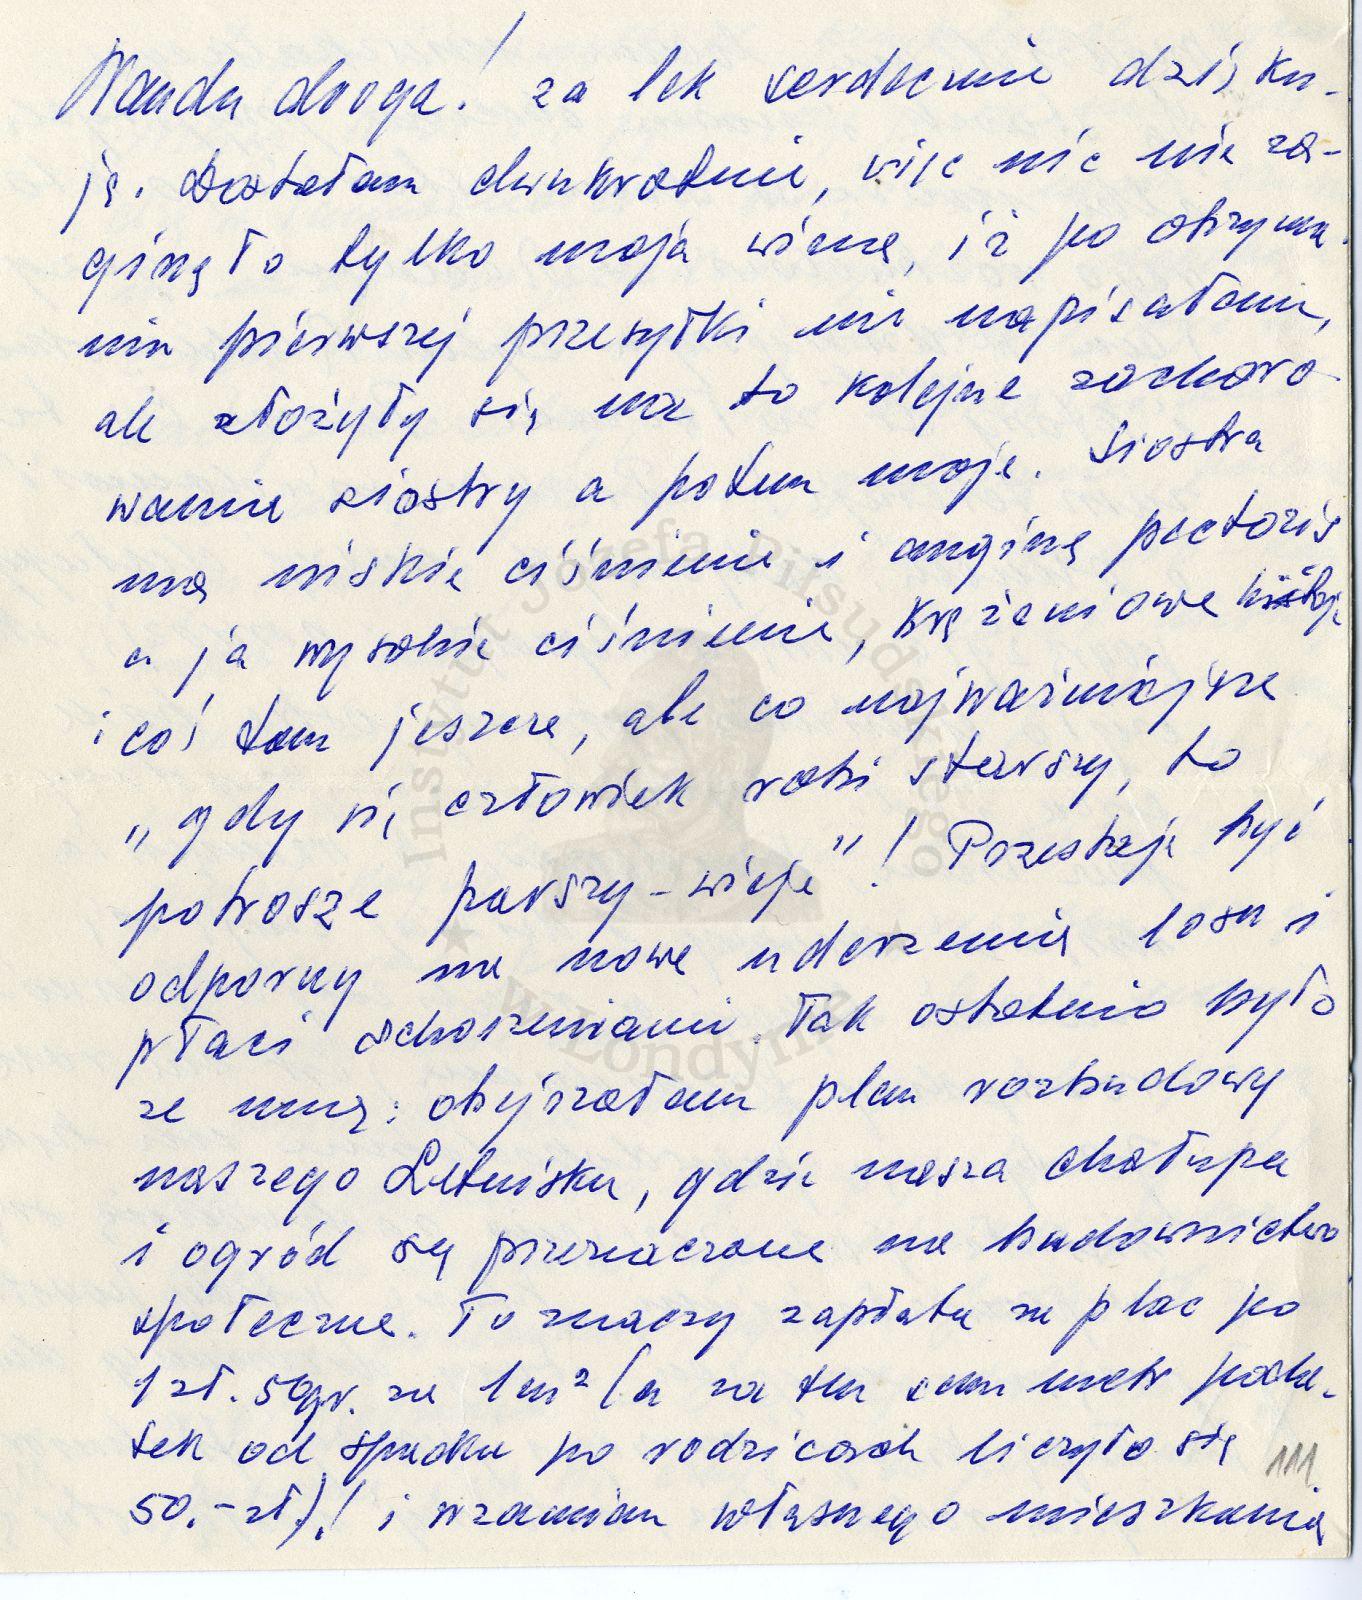 Wando droga! za lek serdecznie dzięku-
ję. Dostałam dwukrotnie, więc nic nie za-
ginęło tylko moja wina, iż po otrzyma-
niu pierwszej przesyłki nie napisałam,
ale złożyły się na to kolejne zachoro-
wania siostry a potem moje. Siostra
ma niskie ciśnienie i anginę pectoris
a ja wysokie ciśnienie, krążeniowe
i coś tam jeszcze, ale co najważniejsze
„gdy się człowiek robi starszy, to
potrosze parszy-wieje"! Przestaje być
odporny na nowe uderzenia losu i
płaci schorzeniami. Tak ostatnio było
ze mną: obejrzałam plan rozbudowy
naszego Letniska, gdzie nasza chałupa
i ogród są przeznaczone na budownictwo
społeczne. To znaczy zapłata za plac po
1 zł. 50gr. za 1m² (a za ten sam metr poda-
tek od spadku po rodzicach liczyło się
50.- zł.)! i wzamian własnego mieszkania
111
Instytut Józefa Piłsudskiego
w Londynie